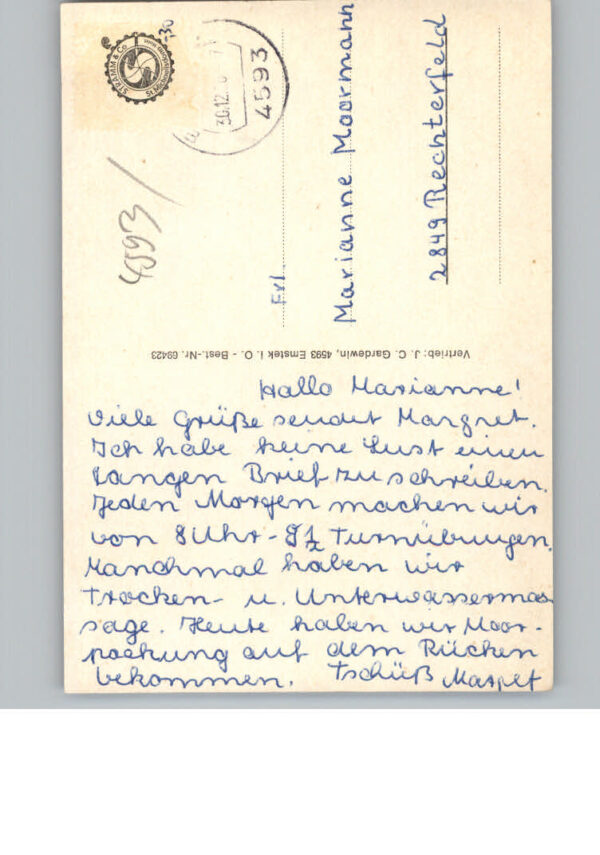 -30
STRAMM & Co
30.12.
4593
4593/
Frl.
Marianne Moormann
2849 Rechterfeld
Vertrieb: J. C. Gardewin, 4593 Emstek i. O. - Best.-Nr. 69423
Hallo Marianne!
Viele Grüße sendet Margret.
Ich habe keine Lust einen
langen Brief zu schreiben.
Jeden Morgen machen wir
von 8 Uhr - 9½ Turnübungen.
Manchmal haben wir
Trocken- u. Unterwassermas
sage. Heute haben wir Moor-
packung auf dem Rücken
bekommen. Tschüß Margret